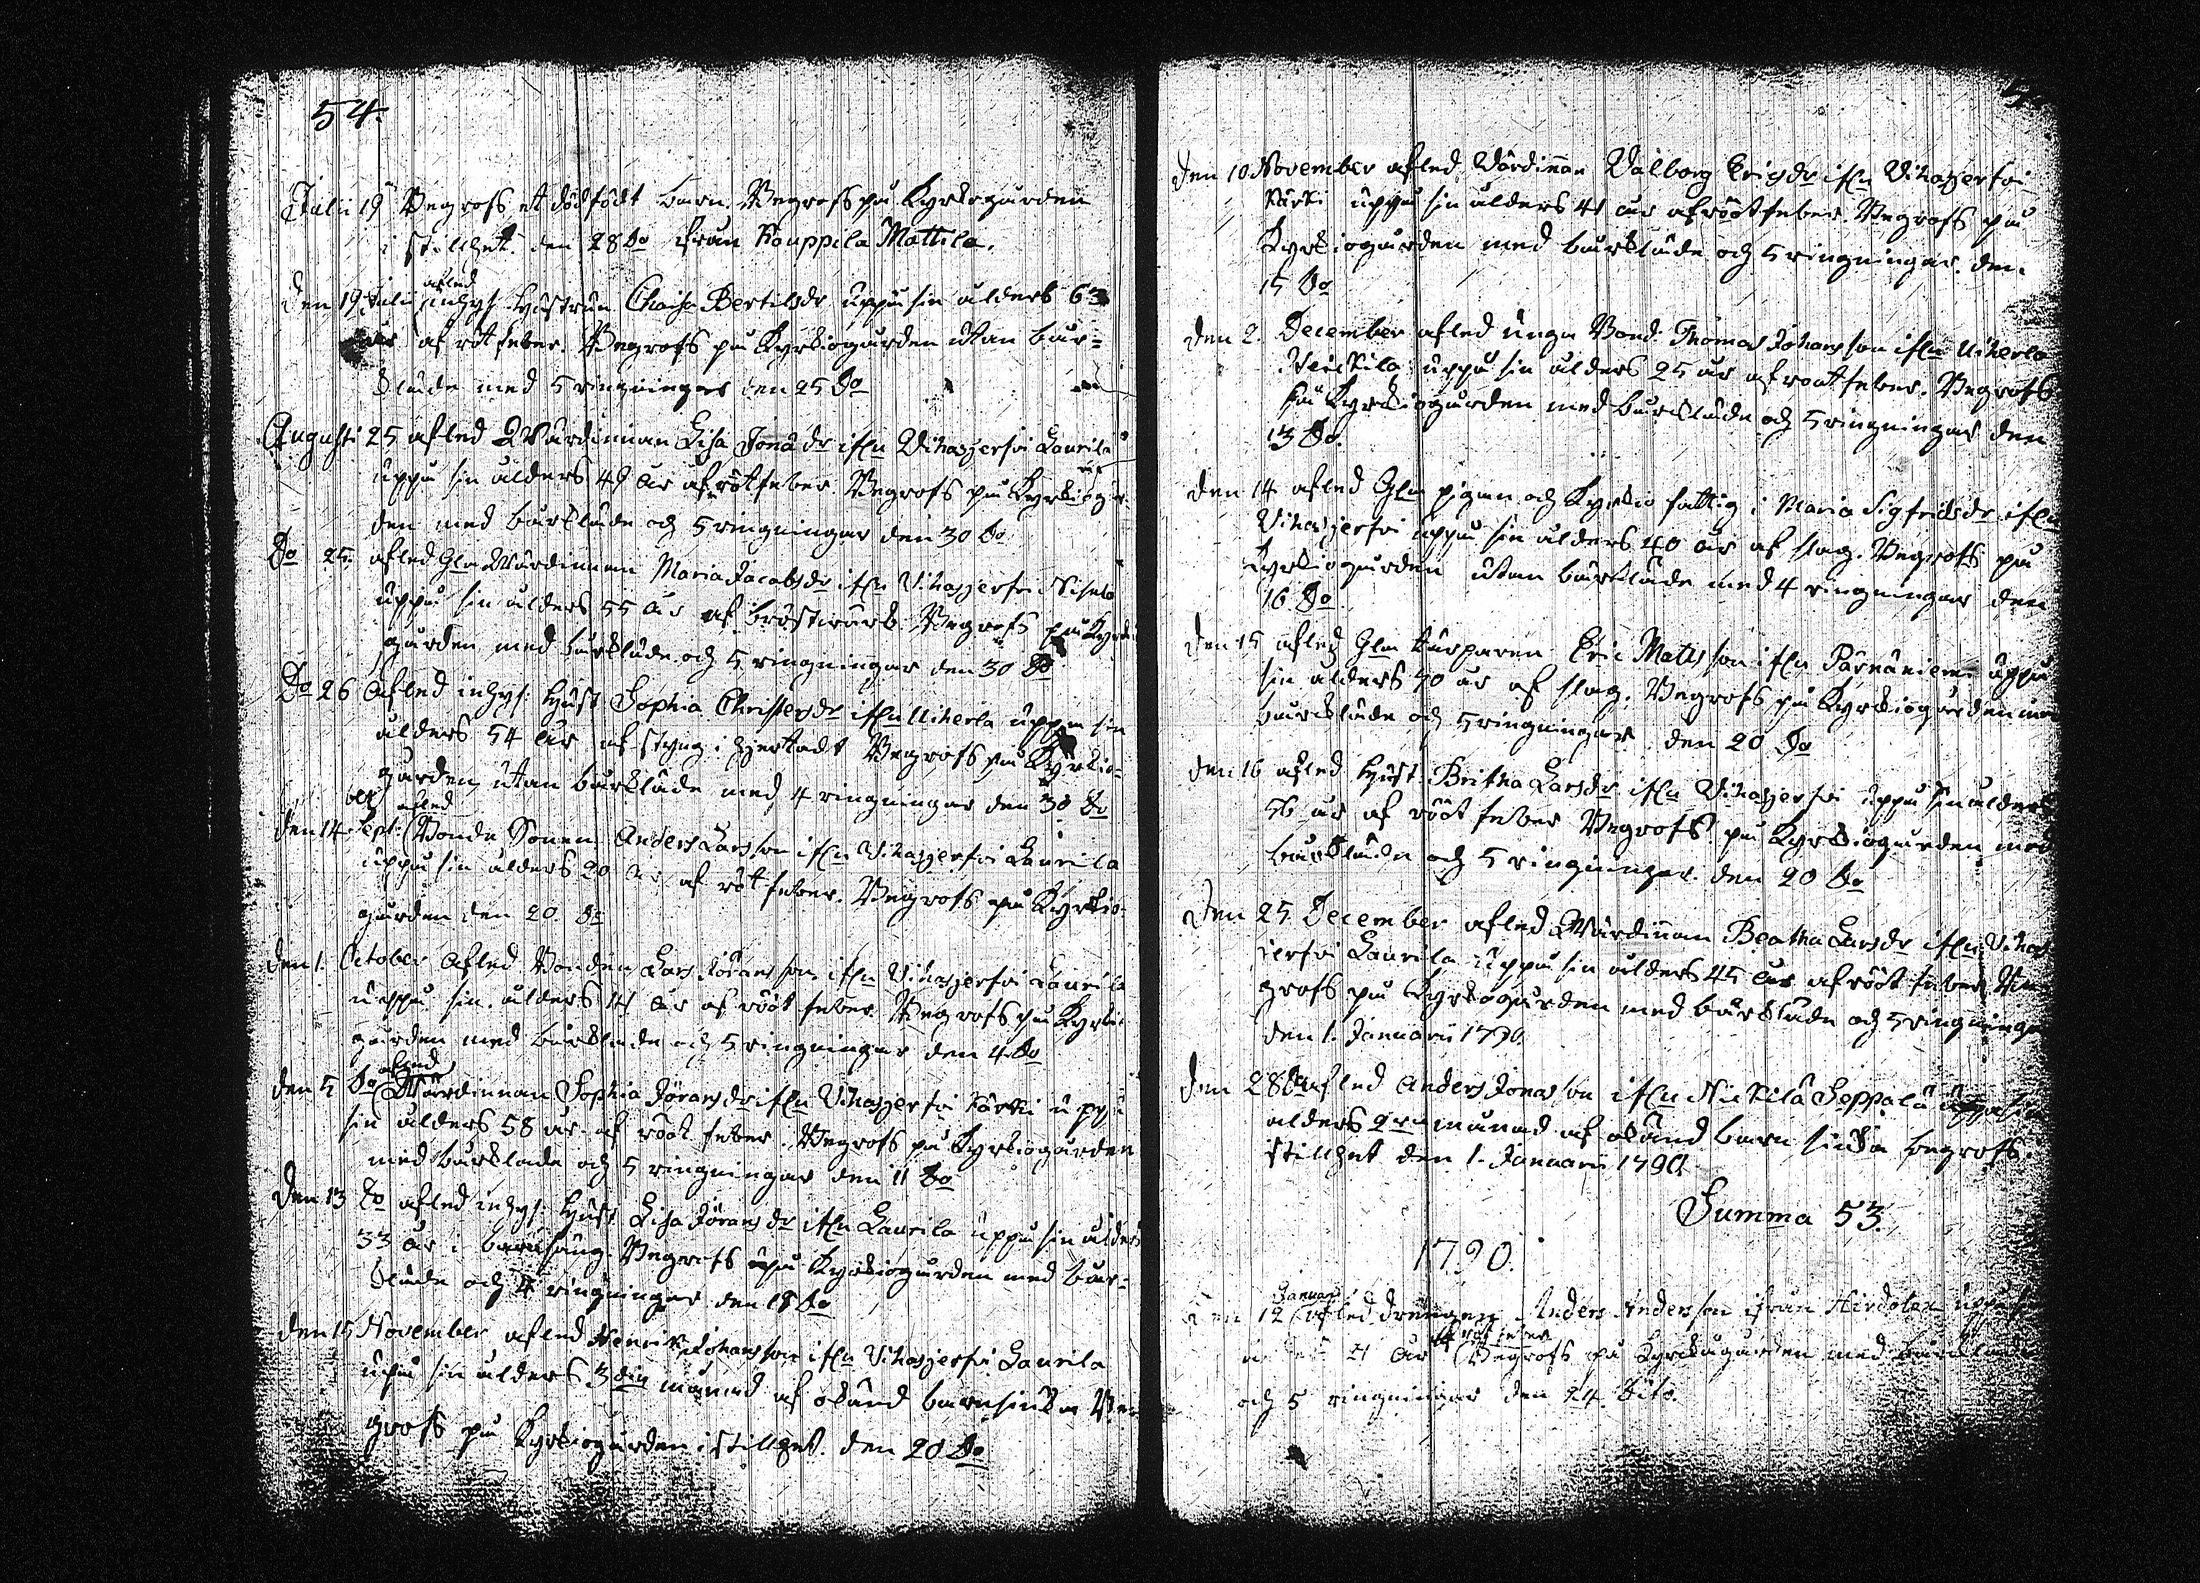 54.
Julii 19 Begrofs et dödfödt barn. Begrofs på Kyrkogården
i stillhet. den 28 Do ifrån Kauppila Mattila.
afled
Den 19 Julii inhys. Hustrun Chaisa Bertilsdr uppå sin ålders 63
år af röt feber. Begrofs på Kyrkiogården utan bår=
kläde med 5 ringningar den 25 Do
Augusti 25 afled Wärdinnan Lisa Jonädr ifrn Vihasjerfvi Laurila
uppå sin ålders 49 år af rötfeber. Begrofs på Kyrkiogår
den med bårkläde och 5 ringningar den 30 Do
Do 25. afled Gla Wärdinnan Maria Jacobsdr ifrn Vihasjerfvi
uppå sin ålders 55 år af bröstwärk. Begrofs på Kyrkio
gården med bårkläde och 5 ringningar den 30 Do
Do 26 Afled inhys: Hust Sophia Christersdr ifrn Uiherla uppå sin
ålders 54 år af styng i hjertadt Begrofs på Kyrkio-
gården utan bårkläde med 4 ringningar den 30 Do
ber afled
den 14 Sept: Bonde Sonen Anders Larsson ifrn Vihasjerfvi Laurila
uppå sin ålders 20 år af röt feber. Begrofs på Kyrkio-
gården den 20 Do
den 1. October Afled Bonden Lars Göransson ifrn Vihasjerfvi Laurila
uppå sin ålders år af rööt feber. Begrofs på Kyrkio
gården med bårkläde och 5 ringningar den 4 Do
afled
den 5 Do Wärdinnan Sophia Jöransdr ifrn Vihasjerfvi Kärki uppå
sin ålders 58 år af rööt feber. Begrofs på Kyrkiogården
med bårklade och 5 ringningar den 11 Do
Den 13 Do afled inhys: Hust Lisa Jöransdr ifrn Laurila uppå sin ålders
33 år i barnsäng. Begrofs på Kyrkiogården med bår-
kläde och 4 ringningar den 18 Do
den 15 November afled Henrik Johansson ifrn Vihasjerfvi Laurila
uppå sin ålders 3dia månad af okänd barnsiuka Be
grofs på Kyrkiogården i stillhet. den 20 Do
Den 10 November afled Wärdinnan Walborg Ericsdr ifrn Vihasjerfvi
Kärki uppå sin ålders 41 år af rööt feber. Begrofs på
Kyrkiogården med bårkläde och 5 ringningar. den.
15 Do
den 2. December afled unga Bond. Thomas Johansson ifrn Uiherla
uppå sin ålders 25 år af root feber. Begrofs
på Kyrkiogården med bårkläde och 5 ringningar den
13 Do.
den 14 afled Gla pigan och Kyrkio fattig i Maria Sigfridsdr ifrn
Vihasjerfvi uppå sin ålders 40 år af slag. Begrofs på
Kyrkiogården utan bårkläde med 4 ringningar den
16 Do
den 15 afled Gla torparen Eric Matsson ifrn Pärnäniemi uppå
sin ålders 70 år af slag. Begrofs på Kyrkiogården med
bårkläde och 5 ringningar den 20 Do
den 16 afled Hust. Britha Larsdr ifrn Vihasjerfvi uppå sin ålders
56 år af rööt feber Begrofs på Kyrkiogården med
bårkläde och 5 ringningar den 20 Do
Den 25 December afled Wärdinnan Beatha Larsdr ifrn Vihas
ierfvi Laurila uppå sin ålders 45 år af rööt feber Be
grofs på Kyrkogården med bårkläde och 5 ringninga
den 1. Januarii 1790.
den 28 Do afled Anders Jonasson ifrn Seppälä uppå sin
ålders månad af okänd barn siuka begrofs
stillhet den 1. Januarii 1790
Summa 53.
1790.
Januarii
Den 12 afled drängen Anders Andersson ifrån Hirdolax uppå
af röt feber
21 år Begrofs på Kyrckogården med bårkläde
och 5 ringningar den 24. Dito.